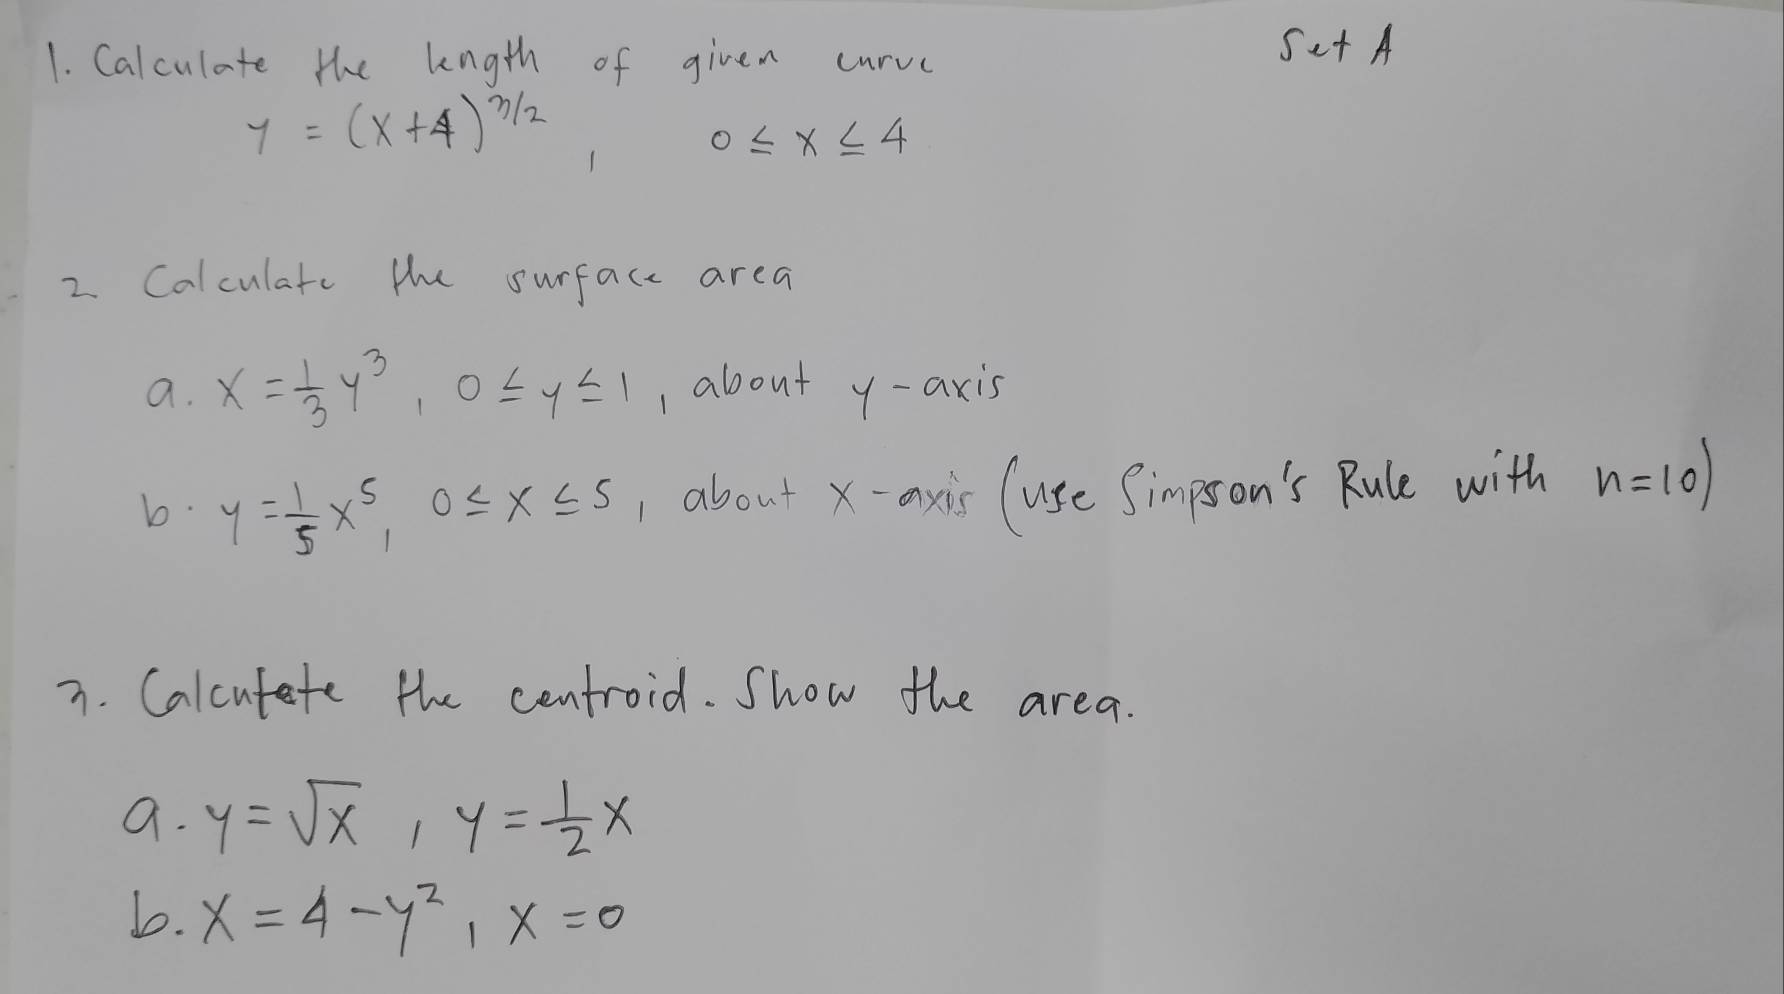 1. Calculate the length of given curve Set A
y = (x+4)^3/2 , 0 ≤ x ≤ 4
2 Calculate the surface area
a. x = 1/3 y³ , 0 ≤ y ≤ 1 , about y-axis
b. y = 1/5 x⁵ , 0 ≤ x ≤ 5 , about x-axis (use Simpson's Rule with n=10)
3. Calculate the centroid. Show the area.
a. y = √x , y = 1/2 x
b. x = 4 - y² , x = 0